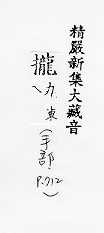 精嚴新集大藏音
攏
力東
(手部.
P.712)